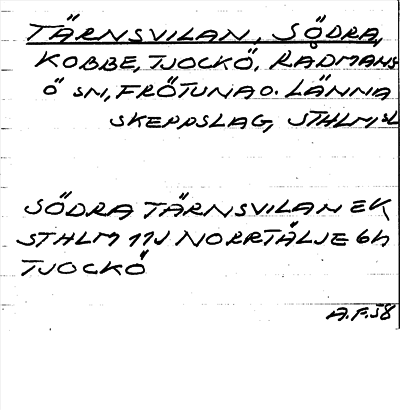 TÄRNSVILAN, SÖDRA,
KOBBE, TJOCKÖ, RÅDMANS
Ö SN, FRÖTUNA O. LÄNNA
SKEPPSLAG, STHLMS L
SÖDRA TÄRNSVILAN EK
STHLM 11J NORRTÄLJE 6h
TJOCKÖ
A.F. 58